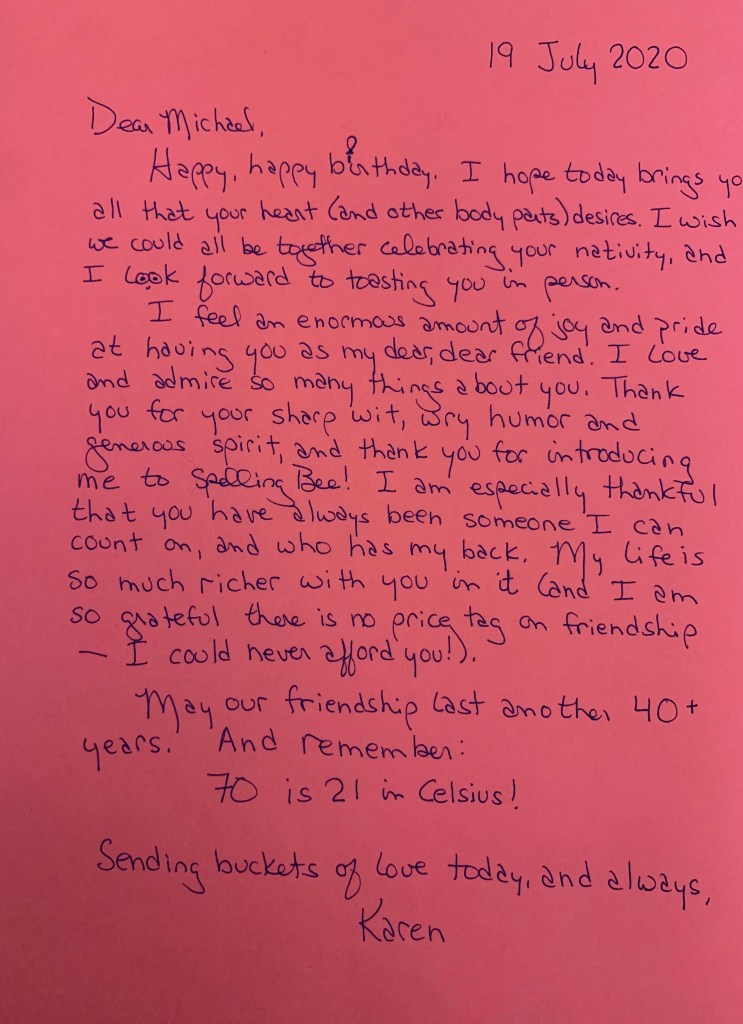 19 July 2020
Dear Michael,
Happy, happy birthday. I hope today brings yo
all that your heart (and other body parts) desires. I wish
we could all be together celebrating your nativity, and
I look forward to toasting you in person.
I feel an enormous amount of joy and pride
at having you as my dear, dear friend. I love
and admire so many things about you. Thank
you for your sharp wit, wry humor and
generous spirit, and thank you for introducing
me to Spelling Bee! I am especially thankful
that you have always been someone I can
count on, and who has my back. My life is
so much richer with you in it (and I am
so grateful there is no price tag on friendship
— I could never afford you!).
May our friendship last another 40+
years. And remember:
70 is 21 in Celsius!
Sending buckets of love today, and always,
Karen